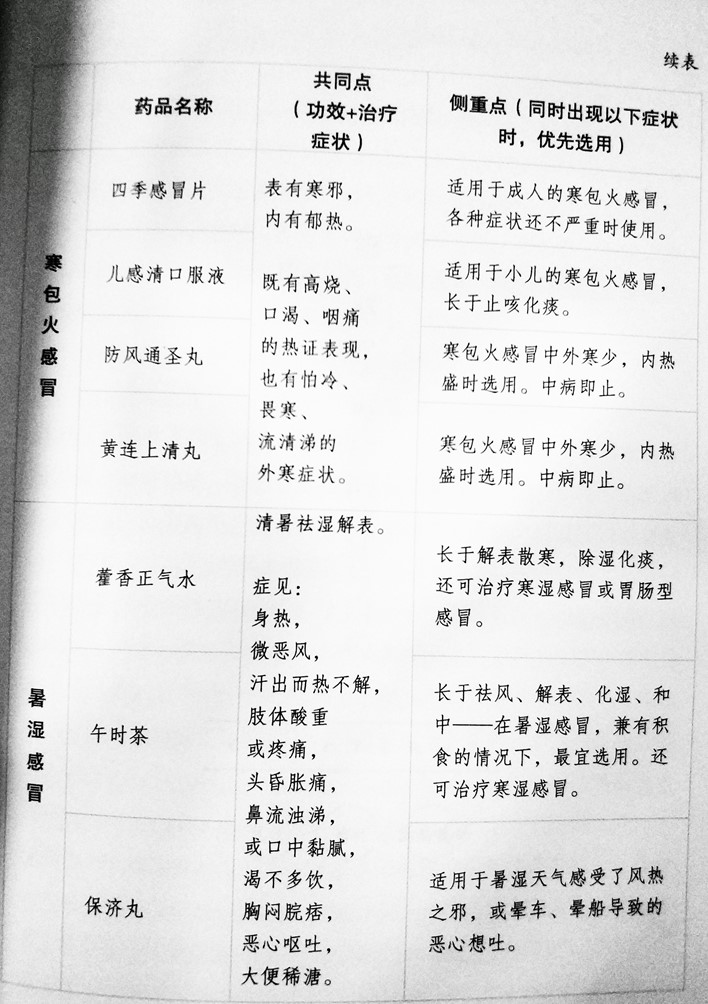 续表
药品名称
共同点
（功效+治疗
症状）
侧重点（同时出现以下症状
时，优先选用）
寒包火感冒
四季感冒片
儿感清口服液
防风通圣丸
黄连上清丸
表有寒邪，
内有郁热。
既有高烧、
口渴、咽痛
的热证表现，
也有怕冷、
畏寒、
流清涕的
外寒症状。
适用于成人的寒包火感冒，
各种症状还不严重时使用。
适用于小儿的寒包火感冒，
长于止咳化痰。
寒包火感冒中外寒少，内热
盛时选用。中病即止。
寒包火感冒中外寒少，内热
盛时选用。中病即止。
暑湿感冒
藿香正气水
午时茶
保济丸
清暑祛湿解表。
症见：
身热，
微恶风，
汗出而热不解，
肢体酸重
或疼痛，
头昏胀痛，
鼻流浊涕，
或口中黏腻，
渴不多饮，
胸闷脘痞，
恶心呕吐，
大便稀溏。
长于解表散寒，除湿化痰，
还可治疗寒湿感冒或胃肠型
感冒。
长于祛风、解表、化湿、和
中——在暑湿感冒，兼有积
食的情况下，最宜选用。还
可治疗寒湿感冒。
适用于暑湿天气感受了风热
之邪，或晕车、晕船导致的
恶心想吐。